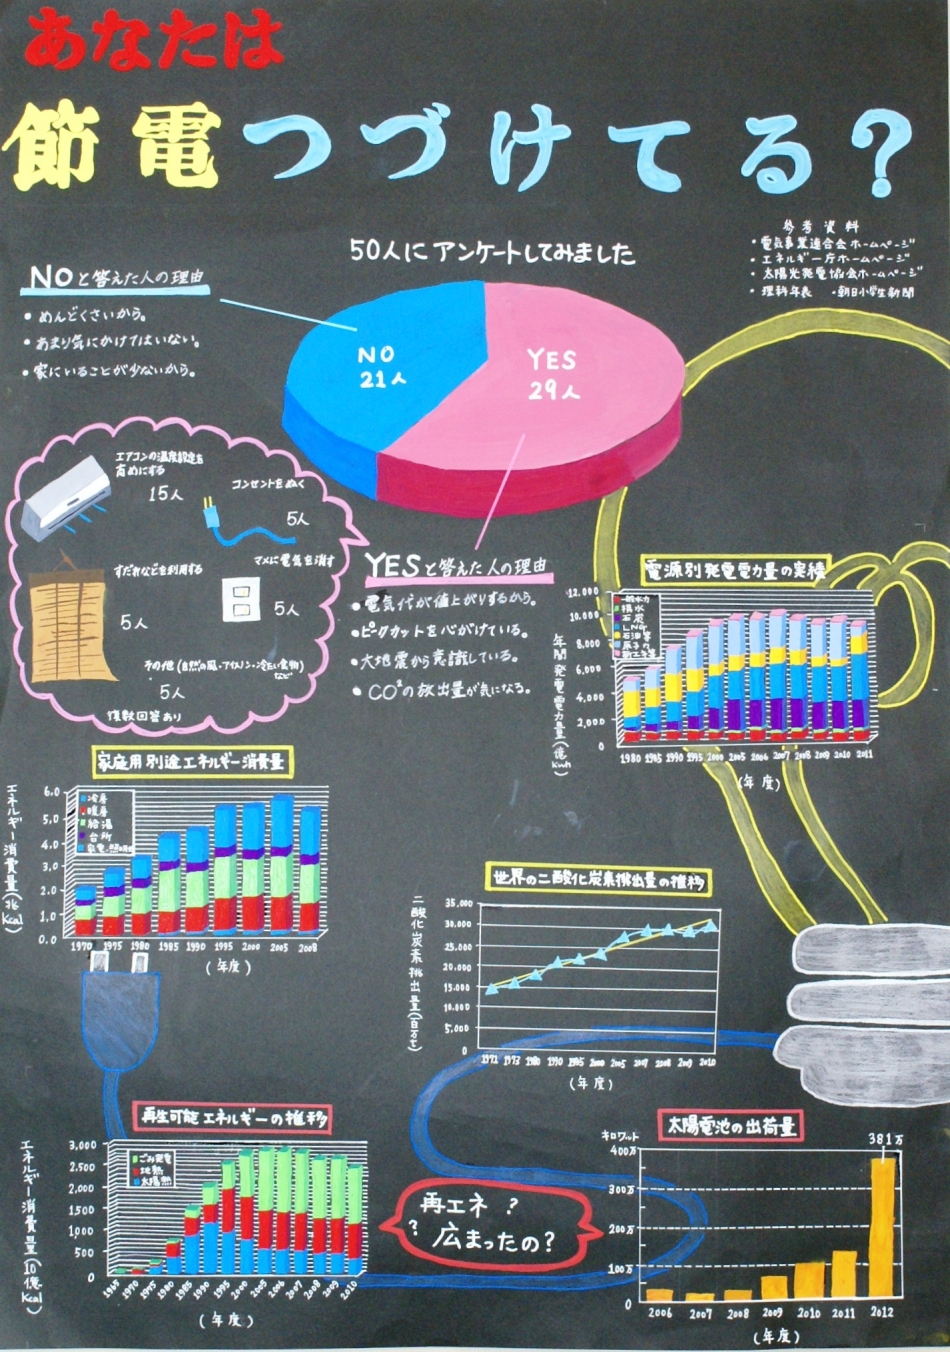 あなたは
節電つづけてる？
参考資料
・電気事業連合会ホームページ
・エネルギー庁ホームページ
・太陽光発電協会ホームページ
・理科年表 ・朝日小学生新聞
50人にアンケートしてみました
NO
21人
YES
29人
NOと答えた人の理由
・めんどくさいから。
・あまり気にかけてはいない。
・家にいることが少ないから。
エアコンの温度設定を
高めにする
15人
コンセントをぬく
5人
すだれなどを利用する
5人
マメに電気を消す
5人
その他(自然の風・アイスノン・冷たい食物)
など
5人
複数回答あり
YESと答えた人の理由
・電気代が値上がりするから。
・ピークカットを心がけている。
・大地震から意識している。
・CO²の放出量が気になる。
電源別発電電力量の実績
年間発電電力量(億kwh)
12,000
10,000
8,000
6,000
4,000
2,000
0
一般水力
揚水
石炭
LNG
石油等
原子力
新エネ等
1980 1985 1990 1995 2000 2005 2006 2007 2008 2009 2010 2011
(年度)
家庭用別途エネルギー消費量
エネルギー消費量(兆Kcal)
6.0
5.0
4.0
3.0
2.0
1.0
0.0
冷房
暖房
給湯
台所
1970 1975 1980 1985 1990 1995 2000 2005 2008
(年度)
世界の二酸化炭素排出量の推移
二酸化炭素排出量(百万t)
35,000
30,000
25,000
20,000
15,000
10,000
5,000
0
1971 1973 1980 1990 1995 2000 2005 2007 2008 2009 2010
(年度)
再生可能エネルギーの推移
エネルギー消費量(10億Kcal)
3,000
2,500
2,000
1,500
1,000
500
0
ごみ発電
地熱
太陽熱
1965 1970 1975 1980 1985 1990 1995 2000 2005 2006 2007 2008 2009 2010
(年度)
再エネ？
？広まったの？
太陽電池の出荷量
キロワット
400万
300万
200万
100万
0
381万
2006 2007 2008 2009 2010 2011 2012
(年度)